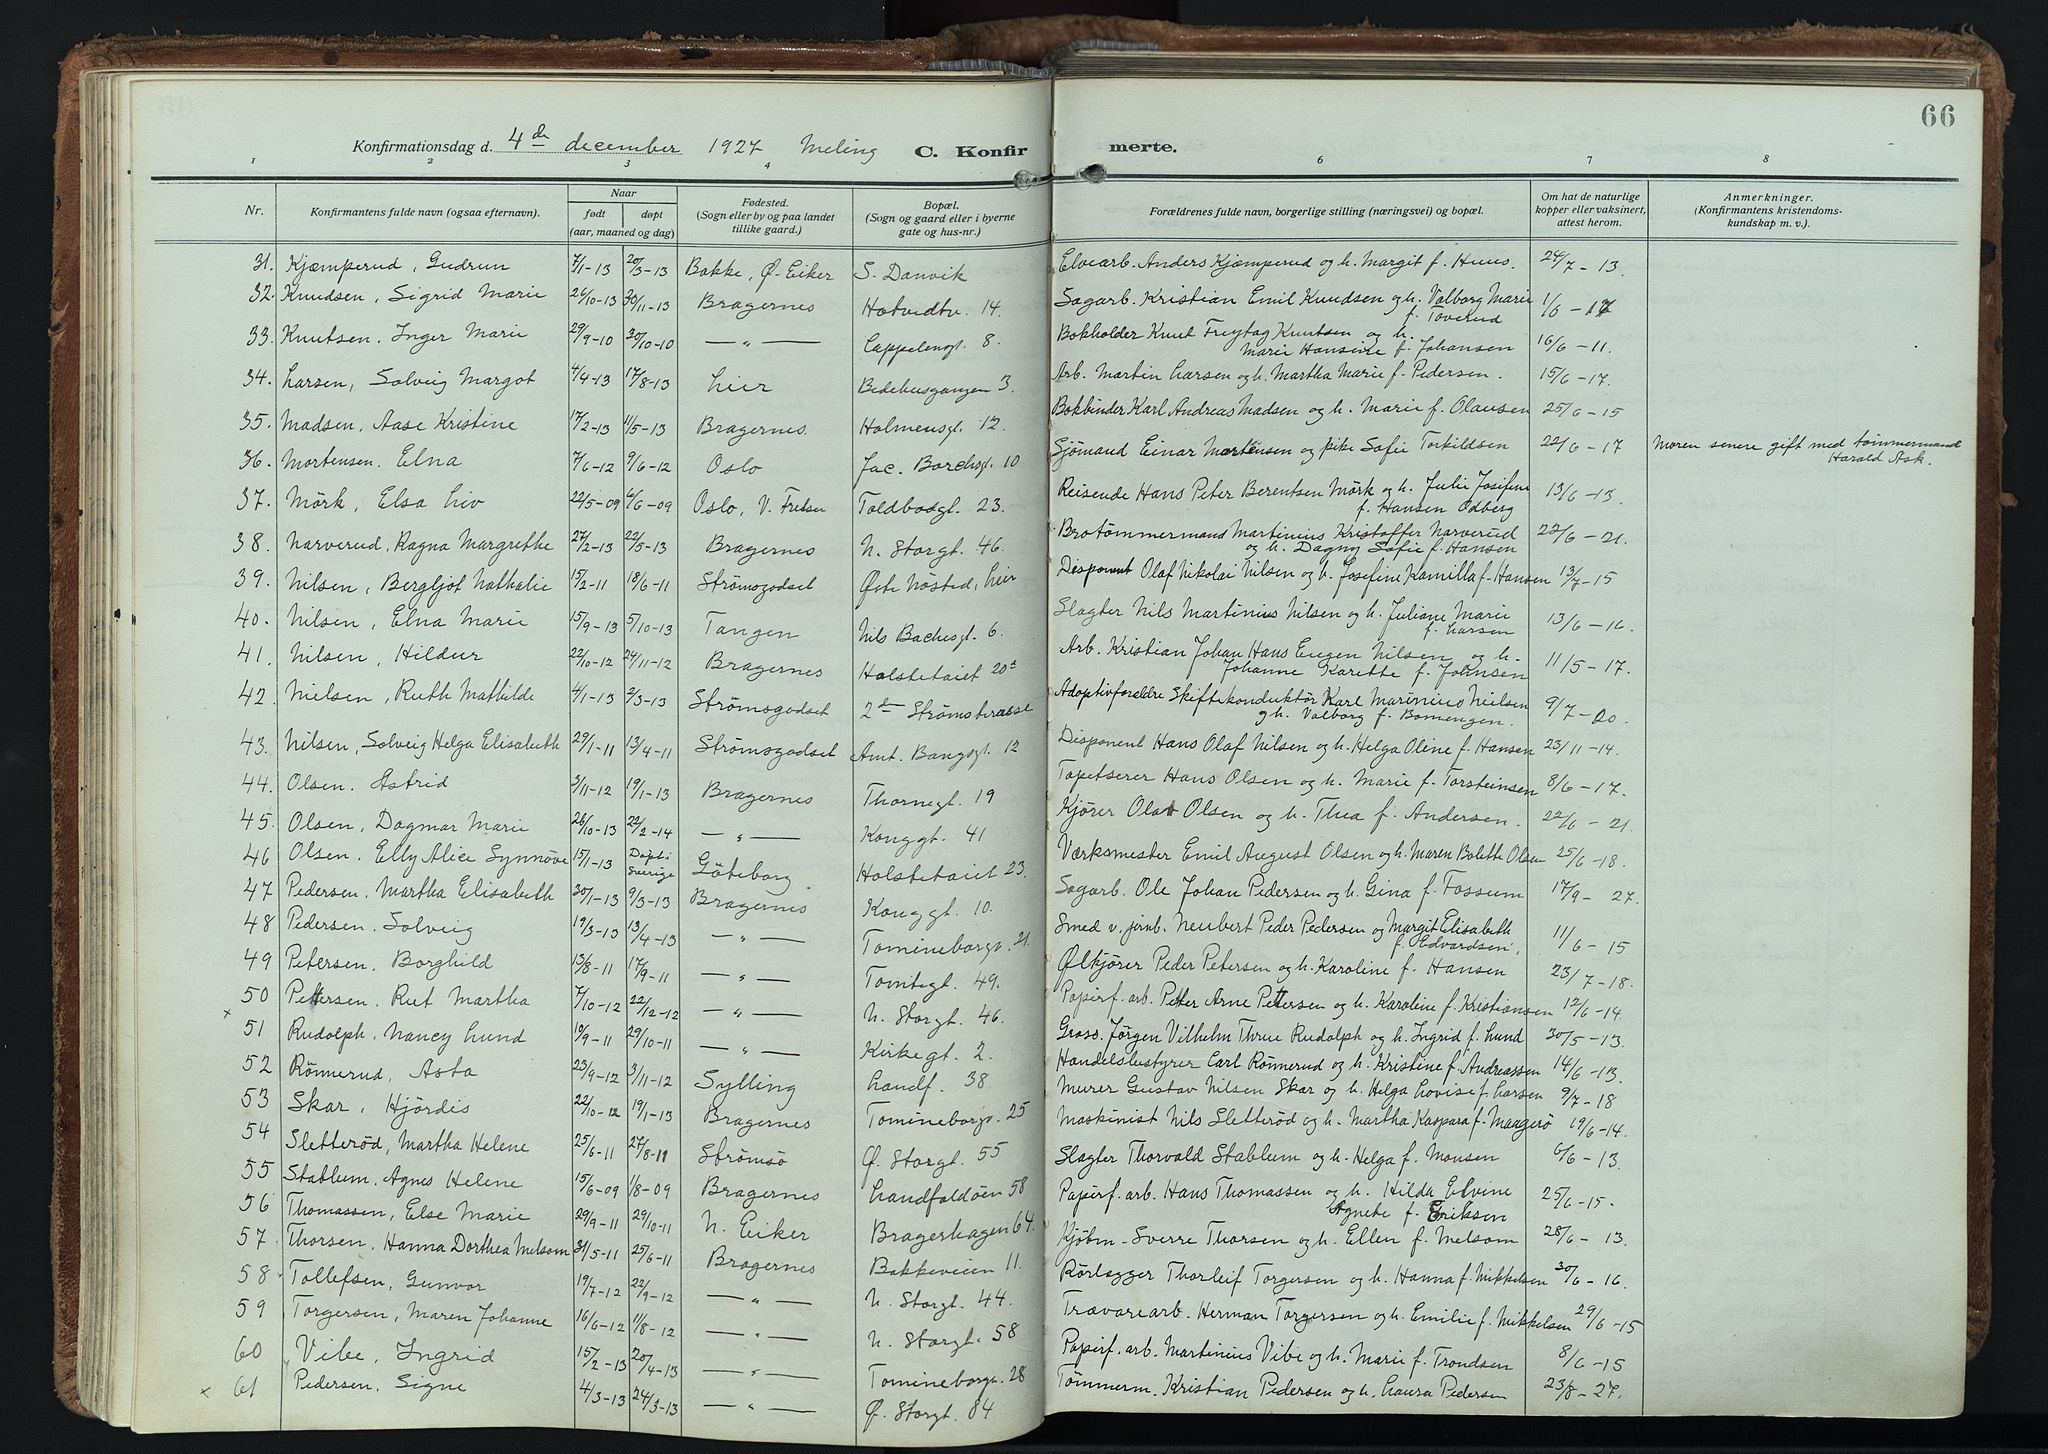 66
Konfirmationsdag d. 4de december 1927 Meling C. Konfirmerte.
1 2 3 4 6 7 8
Nr. Konfirmantens fulde navn (ogsaa efternavn). Naar født døpt (aar, maaned og dag) Fødested. (Sogn eller by og paa landet tillike gaard.) Bopæl. (Sogn og gaard eller i byerne gate og hus-nr.) Forældrenes fulde navn, borgerlige stilling (næringsvei) og bopæl. Om hat de naturlige kopper eller vaksinert, attest herom. Anmerkninger. (Konfirmantens kristendomskundskap m. v.).
31. Kjæmperud, Gudrun 7/1-13 20/3-13 Bakke, Ø. Eiker S. Danvik Elvearb. Anders Kjæmperud og h. Margit f. Huus. 24/7-13.
32. Knudsen, Sigrid Marie 26/10-13 30/11-13 Bragernes Hotvedtv. 14. Sagarb. Kristian Emil Knudsen og h. Valborg Marie f. Toverud 1/6-17
33. Knutsen, Inger Marie 29/9-10 30/10-10 —„— Cappelensgt. 8. Bokholder Knut Freytag Knutsen og h. Marie Hansine f. Johansen 16/6-11.
34. Larsen, Solveig Margot 4/4-13 17/8-13 Lier Bedehusgangen 3. Arb. Martin Larsen og h. Martha Marie f. Pedersen. 15/6-17.
35. Madsen, Aase Kristine 17/2-13 11/5-13 Bragernes. Holmensgt. 12. Bokbinder Karl Andreas Madsen og h. Marie f. Olausen 25/6-15
36. Mortensen, Elna 7/6-12 9/6-12 Oslo Jac. Borchsgt. 10 Sjömand Einar Mortensen og pike Sofie Torkildsen 22/6-17 Moren senere gift med tömmermand Harald Ask.
37. Mörk, Elsa Liv 22/5-09 4/6-09 Oslo, V. Frelser Toldbodgt. 23. Reisende Hans Peter Berentsen Mörk og h. Julie Josefine f. Hansen Odberg 13/6-13.
38. Narverud, Ragna Margrethe 27/2-13 22/5-13 Bragernes N. Storgt. 46. Brotömmermand Martinius Kristoffer Narverud og h. Dagny Sofie f. Hansen 22/6-21.
39. Nilsen, Bergljot Nathalie 15/2-11 18/6-11 Strömsgodset Øvre Nøsted, Lier Disponent Olaf Nikolai Nilsen og h. Josefine Kamilla f. Hansen 13/7-15
40. Nilsen, Elna Marie 15/9-13 5/10-13 Tangen Nils Bachesgt. 6. Slagter Nils Martinius Nilsen og h. Juliane Marie f. Larsen 13/6-16.
41. Nilsen, Hildur 22/10-12 24/11-12 Bragernes Holstetaiet 20a Arb. Kristian Johan Hans Eugen Nilsen og h. Johanne Karette f. Johnsen 11/5-17.
42. Nielsen, Ruth Mathilde 4/1-13 2/3-13 Strömsgodset 2den Strömsterasse Adoptivforældre Skiftekonduktör Karl Marinius Nielsen og h. Valborg f. Bomengen. 9/7-20.
43. Nilsen, Solveig Helga Elisabeth 29/1-11 13/4-11 Strömsgodset Amt. Bangsgt. 12 Disponent Hans Olaf Nilsen og h. Helga Oline f. Hansen 23/11-14.
44. Olsen, Astrid 3/11-12 19/1-13 Bragernes Thornegt. 19 Tapetserer Hans Olsen og h. Marie f. Torsteinsen 8/6-17.
45. Olsen, Dagmar Marie 26/10-13 22/2-14 —„— Konggt. 41 Kjører Olaf Olsen og h. Thea f. Andersen. 22/6-21.
46 Olsen, Elly Alice Synnöve 15/1-13 Døpt i Sverige Göteborg Holstetaiet 23. Værksmester Emil August Olsen og h. Maren Bolette Olsen 25/6-18.
47 Pedersen, Martha Elisabeth 30/1-13 9/3-13 Bragernes Konggt. 10. Sagarb. Ole Johan Pedersen og h. Gina f. Fossum 17/9-27.
48 Pedersen, Solveig 19/3-13 13/4-13 —„— Tomineborgv. 21. Smed v. jernb. Neubert Peder Pedersen og Margit Elisabeth f. Edvardsen, 11/6-15
49 Petersen, Borghild 13/8-11 17/9-11 —„— Tomtegt. 49. Ølkjører Peder Petersen og h. Karoline f. Hansen 23/7-18.
50 Pettersen, Rut Martha 7/10-12 22/12-12 —„— N. Storgt. 46. Papirf. arb. Petter Arne Pettersen og h. Karoline f. Kristiansen 12/6-14.
x 51 Rudolph, Nancy Lund 10/9-11 29/10-11 —„— Kirkegt. 2. Gross. Jørgen Vilhelm Thrue Rudolph og h. Ingrid f. Lund 30/5-13.
52 Rönnerud, Asta 23/9-12 3/11-12 Sylling Landf. 38 Handelsbestyrer Carl Rønnerud og h. Kristine f. Andreassen 14/6-13.
53 Skar, Hjördis 22/10-12 19/1-13 Bragernes Tomineborgv. 25 Murer Gustav Nilsen Skar og h. Helga Lovise f. Larsen 9/7-18
54 Sletteröd, Martha Helene 25/6-11 27/8-11 Strömsö Ø. Storgt. 55 Maskinist Nils Sletteröd og h. Martha Kaspara f. Maagerö 19/6-14.
55 Stablum, Agnes Helene 15/6-09 1/8-09 Bragernes Landfaldöen 58 Slagter Thorvald Stablum og h. Helga f. Monsen 6/6-13.
56 Thomassen, Else Marie 29/9-11 29/10-11 N. Eiker Bragerhagen 64. Papirf. arb. Hans Thomassen og h. Hilda Elvine Agnete f. Eriksen 25/6-15.
57 Thorsen, Hanna Dorthea Melsom 31/5-11 25/6-11 Bragernes Bakkeveien 11. Kjöbm. Sverre Thorsen og h. Ellen f. Melsom 28/6-13.
58 Tollefsen, Gunvor 19/7-12 22/9-12 —„— N. Storgt. 44. Rörlægger Thorleif Torgersen og h. Hanna f. Mikkelsen 30/6-16.
59 Torgersen, Maren Johanne 16/6-12 11/8-12 —„— N. Storgt. 58 Trævarearb. Herman Torgersen og h. Emilie f. Mikkelsen 29/6-15
60 Vibe, Ingrid 15/2-13 20/4-13 —„— Tomineborgv. 28 Papirf. arb. Martinius Vibe og h. Marie f. Trondsen 8/6-15
x 61 Pedersen, Signe 4/3-13 24/3-13 —„— Ø. Storgt. 84 Tömmerm. Kristian Pedersen og h. Laura Pedersen 23/8-27.